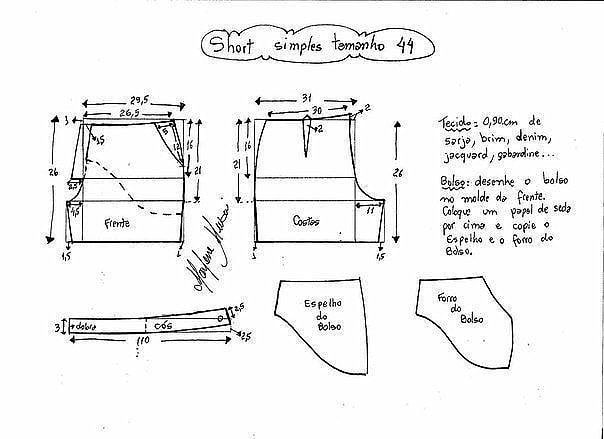 Short simples tamanho 44
29,5
26,5
1
1,5
5
12
16
21
26
2,5
4,5
Frente
1,5
1
31
30
2
2
16
21
26
11
Costas
1
1,5
Tecido: 0,90cm de
sarja, brim, denim,
jacquard, gabardine...
Bolso: desenhe o bolso
no molde da frente.
Coloque um papel de seda
por cima e copie o
Espelho e o forro do
Bolso.
3
dobra
cós
2,5
2,5
110
Espelho
do
Bolso
Forro
do
Bolso